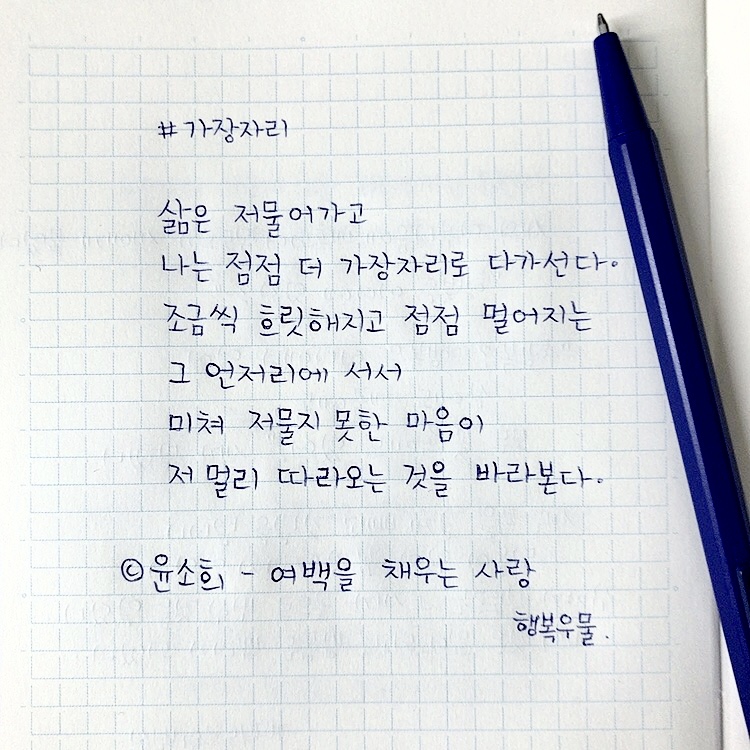 #가장자리
삶은 저물어가고
나는 점점 더 가장자리로 다가선다.
조금씩 흐릿해지고 점점 멀어지는
그 언저리에 서서
미쳐 저물지 못한 마음이
저 멀리 따라오는 것을 바라본다.
©윤소희 - 여백을 채우는 사랑
행복우물.